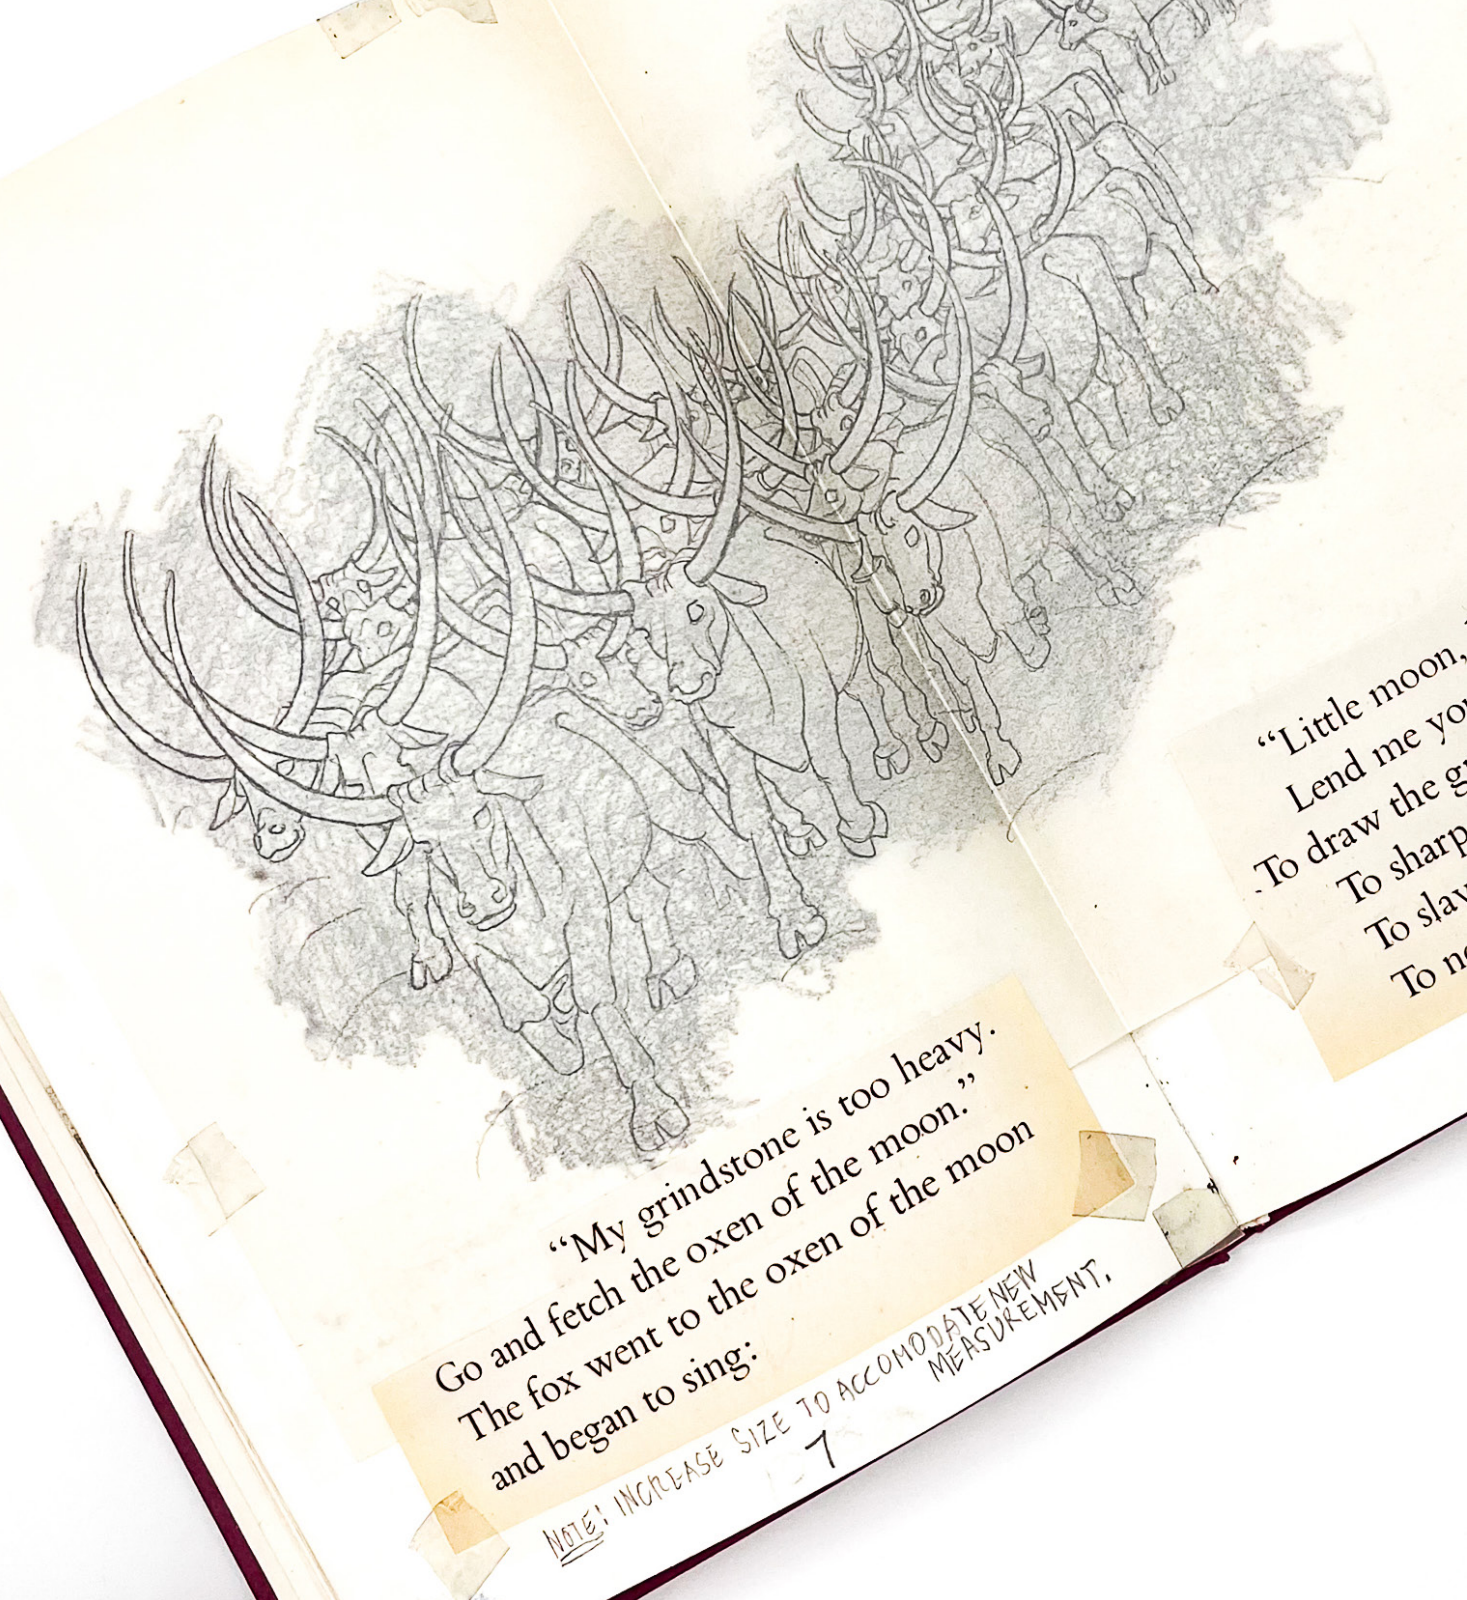 “My grindstone is too heavy.
Go and fetch the oxen of the moon.”
The fox went to the oxen of the moon
and began to sing:
NOTE: INCREASE SIZE TO ACCOMODATE NEW
MEASUREMENT.
7
“Little moon,
Lend me
To draw the
To
To
To